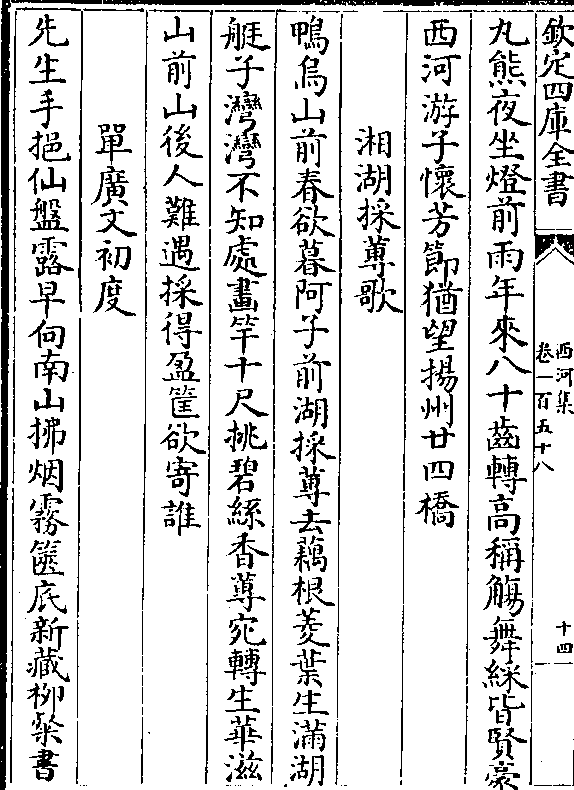 欽定四庫全書
西河集
卷一百五十八
十四
丸熊夜坐燈前雨年來八十齒轉高稱觴舞綵皆賢豪
西河游子懷芳節猶望揚州廿四橋
湘湖採蓴歌
鴨烏山前春欲暮阿子前湖採蓴去藕根菱葉生滿湖
艇子灣灣不知處畫竿十尺挑碧絲香蓴宛轉生華滋
山前山後人難遇採得盈筐欲寄誰
單廣文初度
先生手挹仙盤露早向南山拂烟霧篋底新藏柳粲書